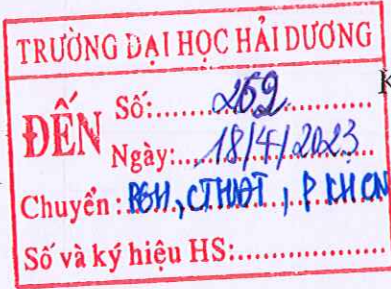 TRƯỜNG ĐẠI HỌC HẢI DƯƠNG
ĐẾN
Số: 262
Ngày: 18/4/2023
Chuyển: BGH, CTHĐT, P. KHCN
Số và ký hiệu HS:
K